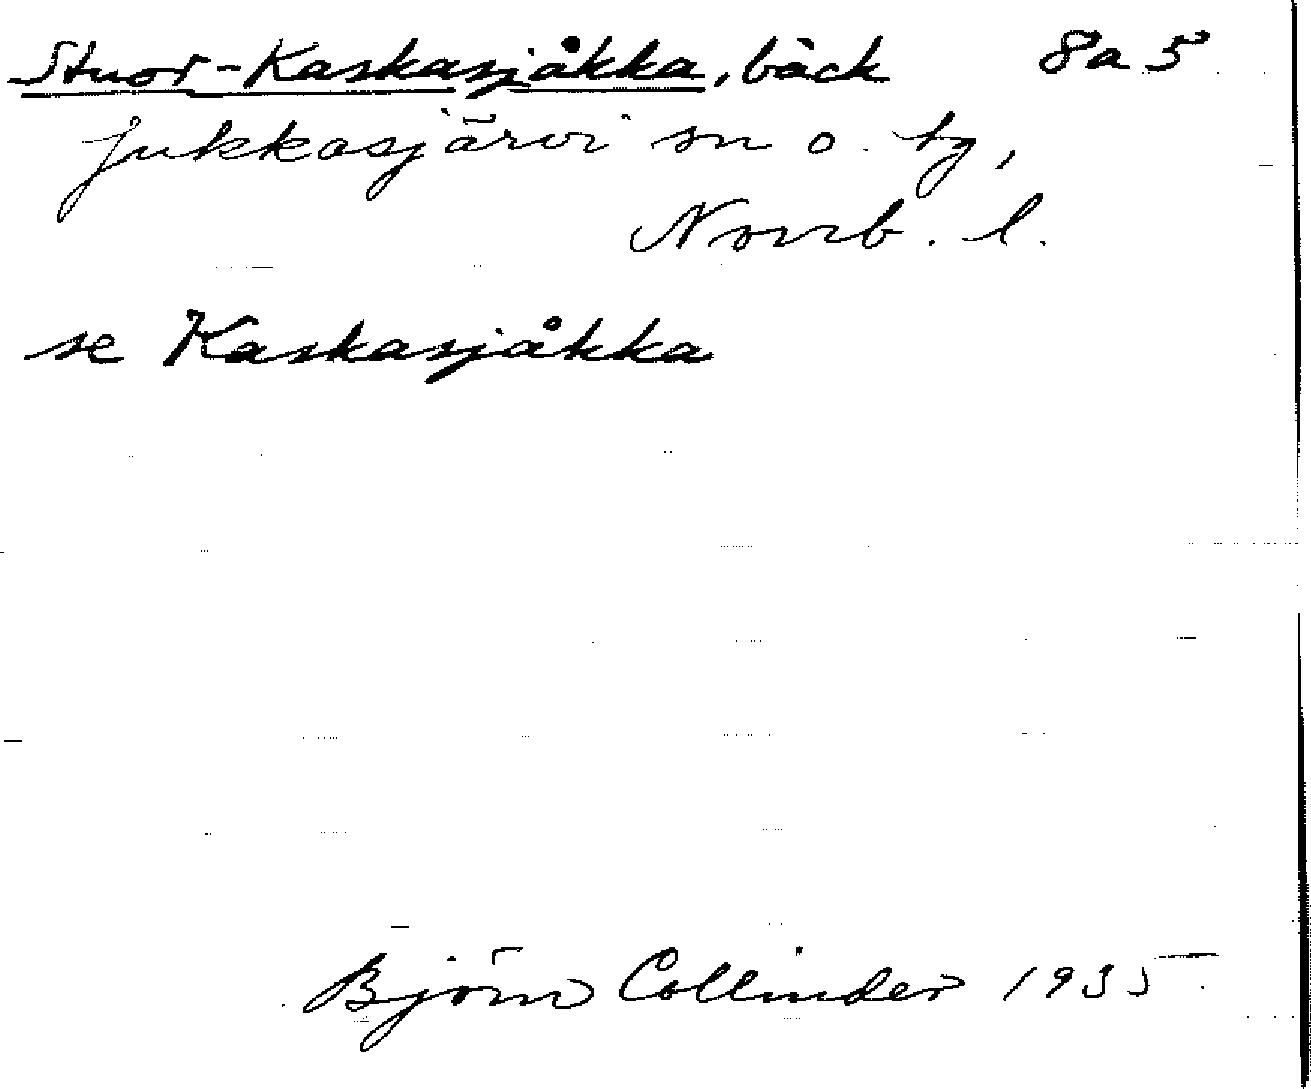 Stuor-Kaskasjåkka, bäck 8a5
Jukkasjärvi sn o. tg,
Norrb. l.
se Kaskasjåkka
Björn Collinder 1935